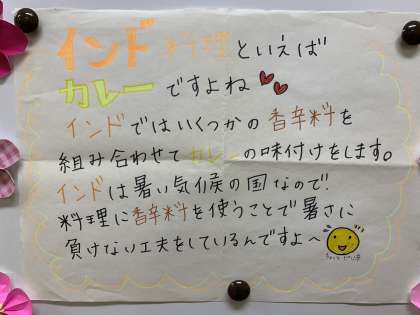 インド料理といえば
カレーですよね
インドではいくつかの香辛料を
組み合わせてカレーの味付けをします。
インドは暑い気候の国なので
料理に香辛料を使うことで暑さに
負けない工夫をしているんですよ〜